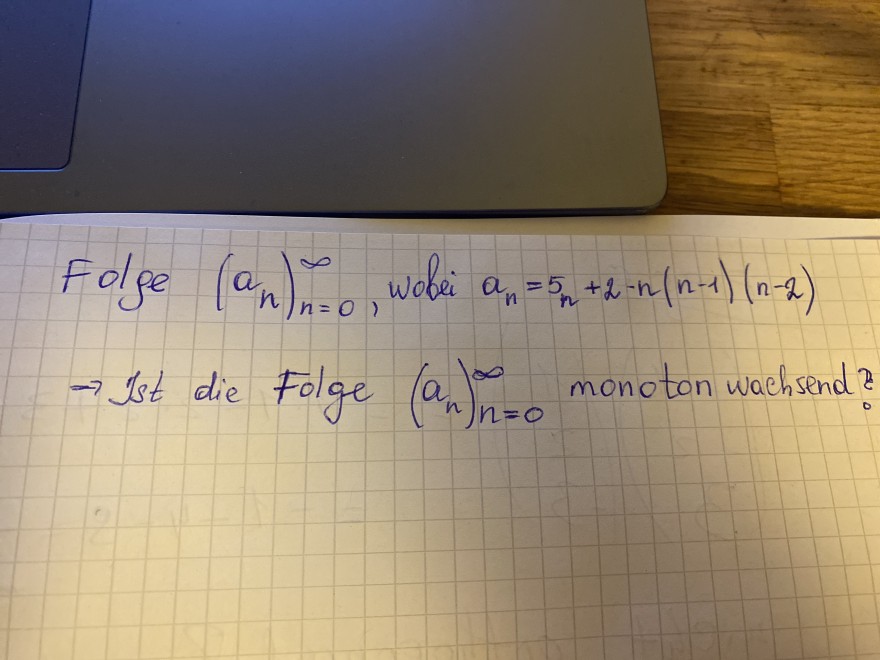 Folge (aₙ)ₙ₌₀^∞, wobei aₙ = 5ₙ + 2 - n(n-1)(n-2)
→ Ist die Folge (aₙ)ₙ₌₀^∞ monoton wachsend?